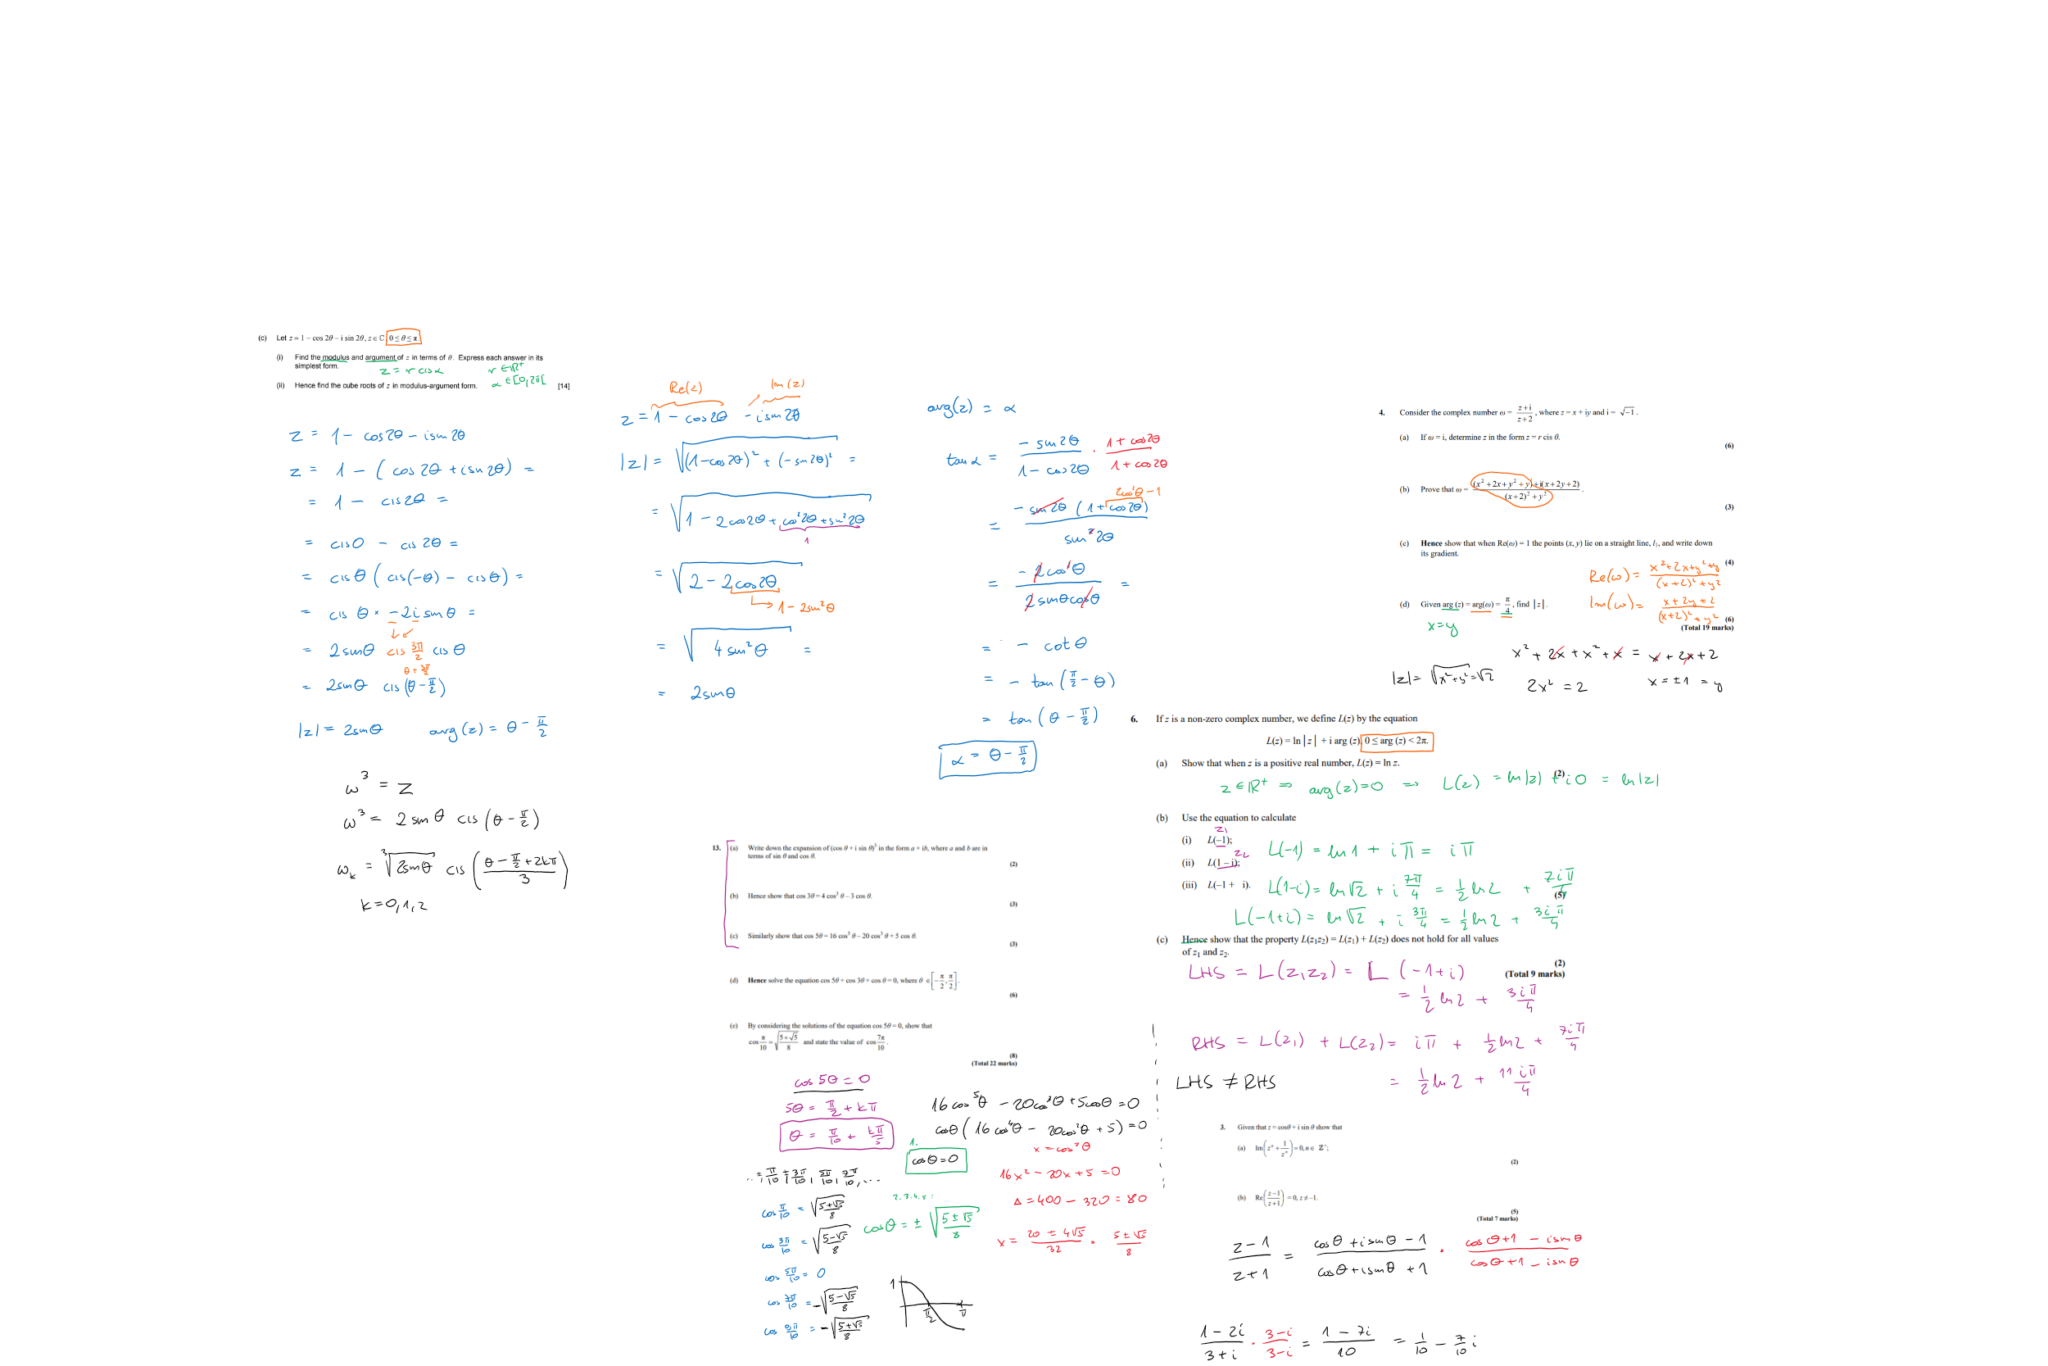 (c) Let z = 1 – cos 2θ – i sin 2θ, z ∈ C, 0 ≤ θ ≤ π.
(i) Find the modulus and argument of z in terms of θ. Express each answer in its
simplest form.
z = r cis α r ∈ ℝ⁺
(ii) Hence find the cube roots of z in modulus-argument form. α ∈ [0, 2π[ [14]
z = 1 - cos2θ - isin2θ
z = 1 - (cos2θ + isin2θ) =
= 1 - cis2θ =
= cis0 - cis2θ =
= cisθ (cis(-θ) - cisθ) =
= cisθ × -2isinθ =
= 2sinθ cis 3π/2 cisθ
θ + 3π/2
= 2sinθ cis(θ - π/2)
|z| = 2sinθ arg(z) = θ - π/2
ω³ = z
ω³ = 2sinθ cis(θ - π/2)
ω_k = ∛(2sinθ) cis((θ - π/2 + 2kπ)/3)
k = 0,1,2
Re(z) Im(z)
z = 1 - cos2θ - isin2θ
|z| = √((1-cos2θ)² + (-sin2θ)²) =
= √(1 - 2cos2θ + cos²2θ + sin²2θ)
1
= √(2 - 2cos2θ)
↳ 1 - 2sin²θ
= √(4sin²θ) =
= 2sinθ
arg(z) = α
tanα = -sin2θ/(1 - cos2θ) · (1 + cos2θ)/(1 + cos2θ)
2cos²θ - 1
= -sin2θ(1 + cos2θ)/sin²2θ
= -2cos²θ/(2sinθcosθ) =
= - cotθ
= - tan(π/2 - θ)
= tan(θ - π/2)
α = θ - π/2
4. Consider the complex number ω = (z + i)/(z + 2), where z = x + iy and i = √–1.
(a) If ω = i, determine z in the form z = r cis θ.
(6)
(b) Prove that ω = ((x² + 2x + y² + y) + i(x + 2y + 2))/((x + 2)² + y²).
(3)
(c) Hence show that when Re(ω) = 1 the points (x, y) lie on a straight line, l₁, and write down
its gradient.
(4)
Re(ω) = (x²+2x+y²+y)/((x+2)²+y²)
(d) Given arg (z) = arg(ω) = π/4, find |z|.
Im(ω) = (x+2y+2)/((x+2)²+y²)
(6)
(Total 19 marks)
x=y
x² + 2x + x² + x = x + 2x + 2
|z| = √(x²+y²) = √2
2x² = 2 x = ±1 = y
6. If z is a non-zero complex number, we define L(z) by the equation
L(z) = ln |z| + i arg (z), 0 ≤ arg (z) < 2π.
(a) Show that when z is a positive real number, L(z) = ln z.
(2)
z ∈ ℝ⁺ ⇒ arg(z)=0 ⇒ L(z) = ln|z| + i0 = ln|z|
(b) Use the equation to calculate
z₁
(i) L(–1); L(-1) = ln1 + iπ = iπ
z₂
(ii) L(1 – i);
(iii) L(–1 + i). L(1-i) = ln√2 + i 7π/4 = 1/2 ln2 + 7iπ/4
(5)
L(-1+i) = ln√2 + i 3π/4 = 1/2 ln2 + 3iπ/4
(c) Hence show that the property L(z₁z₂) = L(z₁) + L(z₂) does not hold for all values
of z₁ and z₂.
(2)
(Total 9 marks)
LHS = L(z₁z₂) = L(-1+i)
= 1/2 ln2 + 3iπ/4
RHS = L(z₁) + L(z₂) = iπ + 1/2 ln2 + 7iπ/4
= 1/2 ln2 + 11iπ/4
LHS ≠ RHS
13. (a) Write down the expansion of (cos θ + i sin θ)³ in the form a + ib, where a and b are in
terms of sin θ and cos θ.
(2)
(b) Hence show that cos 3θ = 4 cos³ θ – 3 cos θ.
(3)
(c) Similarly show that cos 5θ = 16 cos⁵ θ – 20 cos³ θ + 5 cos θ.
(3)
(d) Hence solve the equation cos 5θ + cos 3θ + cos θ = 0, where θ ∈ [–π/2, π/2].
(6)
(e) By considering the solutions of the equation cos 5θ = 0, show that
cos π/10 = √((5 + √5)/8) and state the value of cos 7π/10.
(8)
(Total 22 marks)
cos5θ = 0
5θ = π/2 + kπ
θ = π/10 + kπ/5
cos π/10 = √((5+√5)/8)
cos 3π/10 = √((5-√5)/8)
cos 5π/10 = 0
cos 7π/10 = -√((5-√5)/8)
cos 9π/10 = -√((5+√5)/8)
16cos⁵θ - 20cos³θ + 5cosθ = 0
cosθ(16cos⁴θ - 20cos²θ + 5) = 0
1.
cosθ = 0
x = cos²θ
16x² - 20x + 5 = 0
Δ = 400 - 320 = 80
2. 3. 4. 5:
cosθ = ± √((5±√5)/8)
x = (20 ± 4√5)/32 = (5±√5)/8
1
π/2
π
3. Given that z = cosθ + i sin θ show that
(a) Im(zⁿ + 1/zⁿ) = 0, n ∈ ℤ⁺;
(2)
(b) Re((z–1)/(z+1)) = 0, z ≠ –1.
(5)
(Total 7 marks)
(z-1)/(z+1) = (cosθ + isinθ - 1)/(cosθ + isinθ + 1) · (cosθ+1 - isinθ)/(cosθ+1 - isinθ)
(1-2i)/(3+i) · (3-i)/(3-i) = (1-7i)/10 = 1/10 - 7/10 i